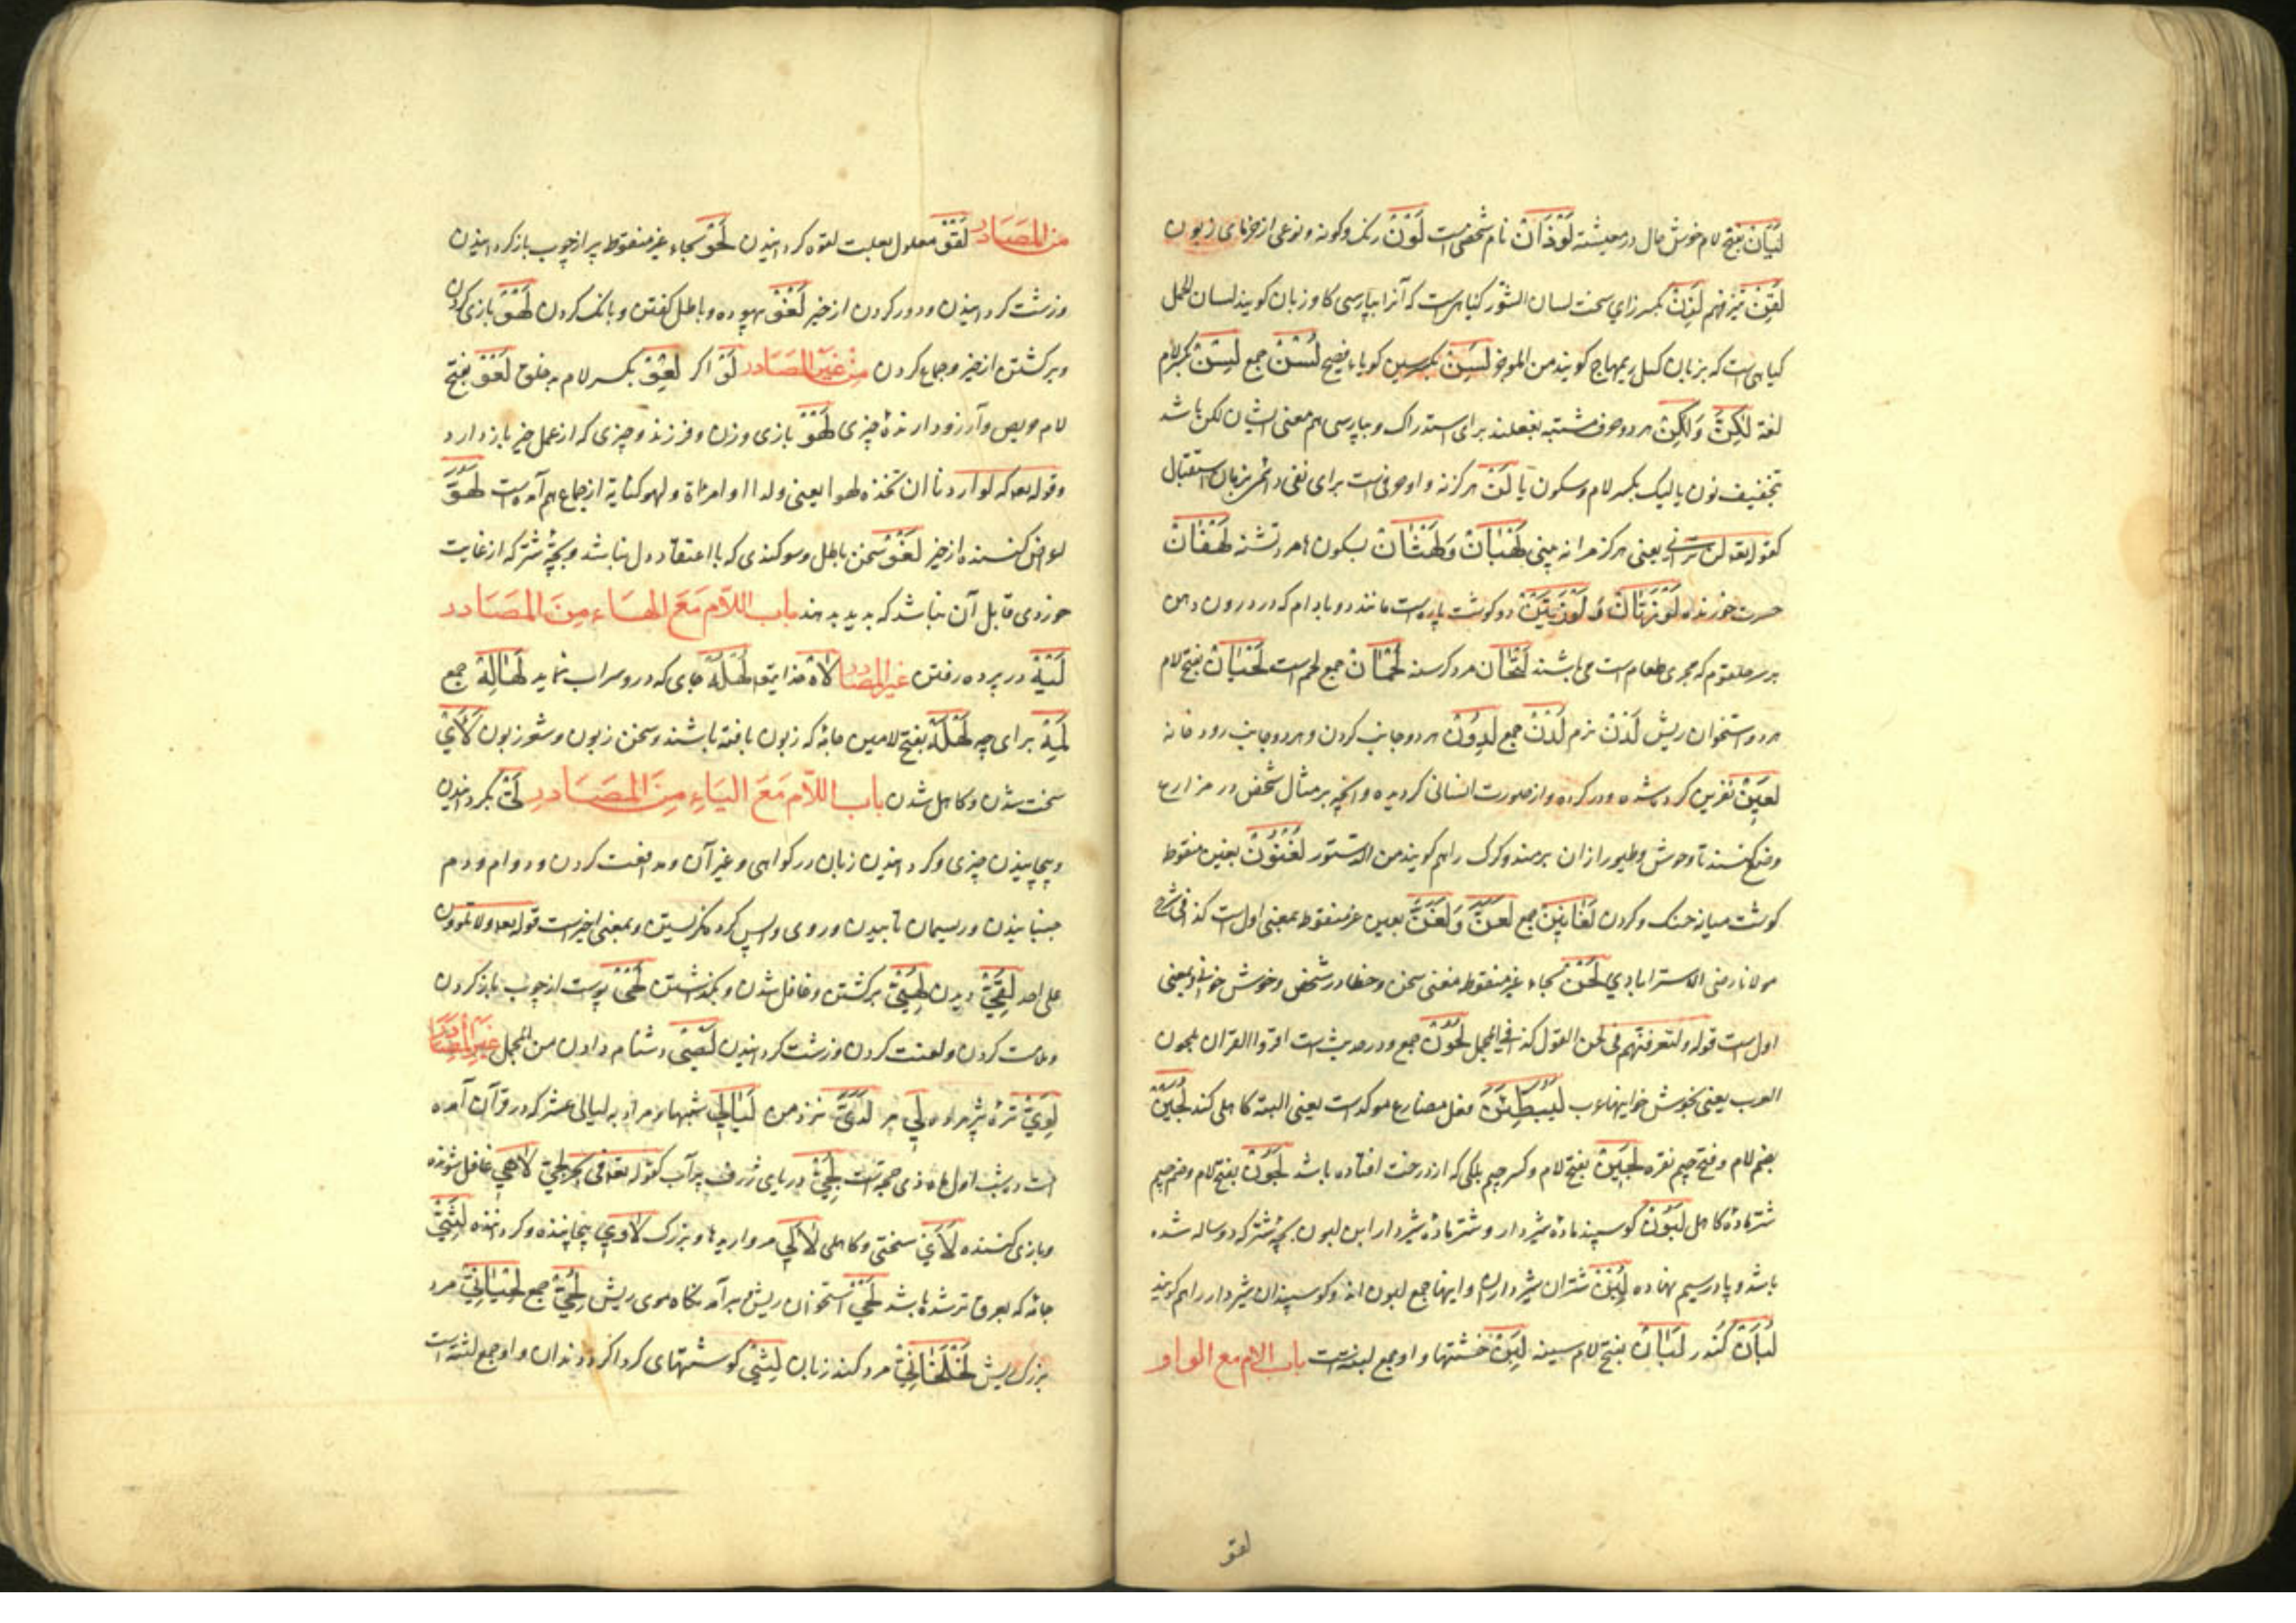 لَیَان بفتح لام خوش حال در معیشته لَوْذَانْ نام شخصی است لَوْنْ رنک و کونه و نوعی از خرمای زبون
لَقِنْ تیز فهم لَزِنْ بکسر زای سخت لسان الثور کیاهی است که آنرا بپارسی کاو زبان کویند لسان الحمل
کیاهی است که بزبان کویند من الموجز لَسِنْ بکسر سین کویا با فصیح لُسْنْ جمع لِسْنْ بکسر لام
لغة لٰکِنَّ وَلٰکِنْ هر دو حرف مشتبه بفعلند برای استدراک و بپارسی هم معنی ایشان لکن باشد
بتخفیف نون یا لیک بکسر لام و سکون یا لَنْ هرکز نه و او حرفی است برای نفی در زمان استقبال
کقوله تعالی لن ترٰنی یعنی هرکز مرا نه بینی لَهْبَانْ وَلَهْثَانْ بسکون ها مرد تشنه لَهْفَانْ
حسرت خورنده لَوْزَتَانْ وَ لَوْزَتَیْنْ دو کوشت پاره است مانند دو بادام که در درون دهن
بر سر حلقوم که مجری طعام است می باشند لَتْحَان مرد کرسنه لُحْمَانْ جمع لحم است لَحْیَانْ بفتح لام
هر دو استخوان ریش لَدْنْ نرم لُدْنْ جمع لَدِیدَانْ هر دو جانب کردن و هر دو جانب رودخانه
لَعِینْ نفرین کرده شده و در کرده و از صورت انسانی کردیده و آنچه بر مثال شخص در مزارع
وضع کنند تا وحوش و طیور از آن برمند و کرک را هم کویند من الدستور لُغْنُونْ بغین منقوط
کوشت میان حنک و کردن لَغَانِینْ جمع لَعَنَّ وَلَغَنَّ بعین غیر منقوط بمعنی اول است کذا فی شرح
مولانا رضی الاسترابادی لَحْنْ بحاء غیر منقوط معنی سخن و خطا در سخن و خوش خوانی و بمعنی
اول است قوله ولتعرفنهم فی لحن القول کذا فی المجمل لُحُونْ جمع و در حدیث است اقرؤا القران بلحون
العرب یعنی بخوش خوانیهای عرب لَیُبَطِّئَنَّ فعل مضارع موکد است یعنی البته کاهلی کند لُجَیْنْ
بضم لام و فتح جیم نقره لَجِینْ بفتح لام و کسر جیم برکی که از درخت افتاده باشد لَجُونْ بفتح لام و ضم جیم
شتر ماده کاهل لَبُونْ کوسپند ماده شیردار و شتر ماده شیردار ابن لبون بچه شتر که دو ساله شده
باشد و پا در سیم نهاده لُبْنْ شتران شیردار و اینها جمع لبون اند و کوسپندان شیردار را هم کویند
لُبَانْ کُندر لَبَانْ بفتح لام سینه لَبِنْ خشتها و او جمع لبنه است باب اللام مع الواو
لقو
من المصادر لَقْوْ معلول بعلت لقوه کردانیدن لَحْوْ بحاء غیر منقوط پر از چوب باز کردانیدن
و زشت کردانیدن و دور کردن از خیر لَغْوْ بیهوده و باطل کفتن و بانک کردن لَهْوْ بازی کردن
و برکشتن از خیر و جماع کردن من غیر المصادر لَوْ اکر لِعْوْ بکسر لام بدخلق لَعْوْ بفتح
لام حریص و آرزو دارنده چیزی لَهْوْ بازی و زن و فرزند و چیزی که از عمل خیر باز دارد
و قوله تعالی که لو اردنا ان نتخذ لهوا یعنی ولدا او امراة و لهو کنایة از جماع هم آمده است لَهُوَّ
اعراض کننده از خیر لَغْوْ سخن باطل و سوکندی که با اعتقاد دل نباشد و بچه شتر که از غایت
خوردی قابل آن نباشد که بدیه دهند باب اللام مع الهاء من المصادر
لَیْهْ در پرده رفتن غیر المصادر لاهْ خدایتعالی لُهْلُهْ جای که درو سراب نماید لَهَالِهْ جمع
لِمَهْ برای چه لَهْلَهْ بفتح لامین جامه که زبون بافته باشند و سخن زبون و شعر زبون لَاْیْ
سخت شدن و کاهل شدن باب اللام مع الیاء من المصادر لَیّْ بکردانیدن
و پیچانیدن چیزی و کردانیدن زبان در کواهی و غیر آن و مدافعت کردن در وام و دم
جنبانیدن و ریسمان تابیدن و روی واپس کرده نکریستن و بمعنی اخیر است قوله تعالی ولا تلوون
علی احد لُقِیّْ دیدن لُهِیّْ برکشتن و غافل شدن و بکذاشتن لَحْیْ پوست از چوب باز کردن
و ملامت کردن و لعنت کردن و زشت کردانیدن لَصْیْ دشنام دادن من المجمل غیر المصادر
لَوِیّْ تره پژمرده لِی مر لَدَیَّ نزد من لَیَالِی شبها و مراد به لیالی عشر که در قرآن آمده
است ده شب اول ماه ذی حجه است لُجِّیّْ دریای ژرف پر آب کقوله تعالی فی بحر لجی لاهِی غافل شونده
و بازی کننده لَاْیْ سختی و کاهلی لآلِی مرواریدها و بزرک لاوِی پیچانیده و کردننده لَثِیّْ
جامه که بعرق تر شده باشد لَحْیْ استخوان ریش برآمدنکاه موی ریش لُحِیّْ جمع لِحْیَانِیّْ مرد
بزرک ریش لَخْلَخَانِیّْ مرد کند زبان لِثِی کوشتهای کرداکرد دندان و او جمع لثه است